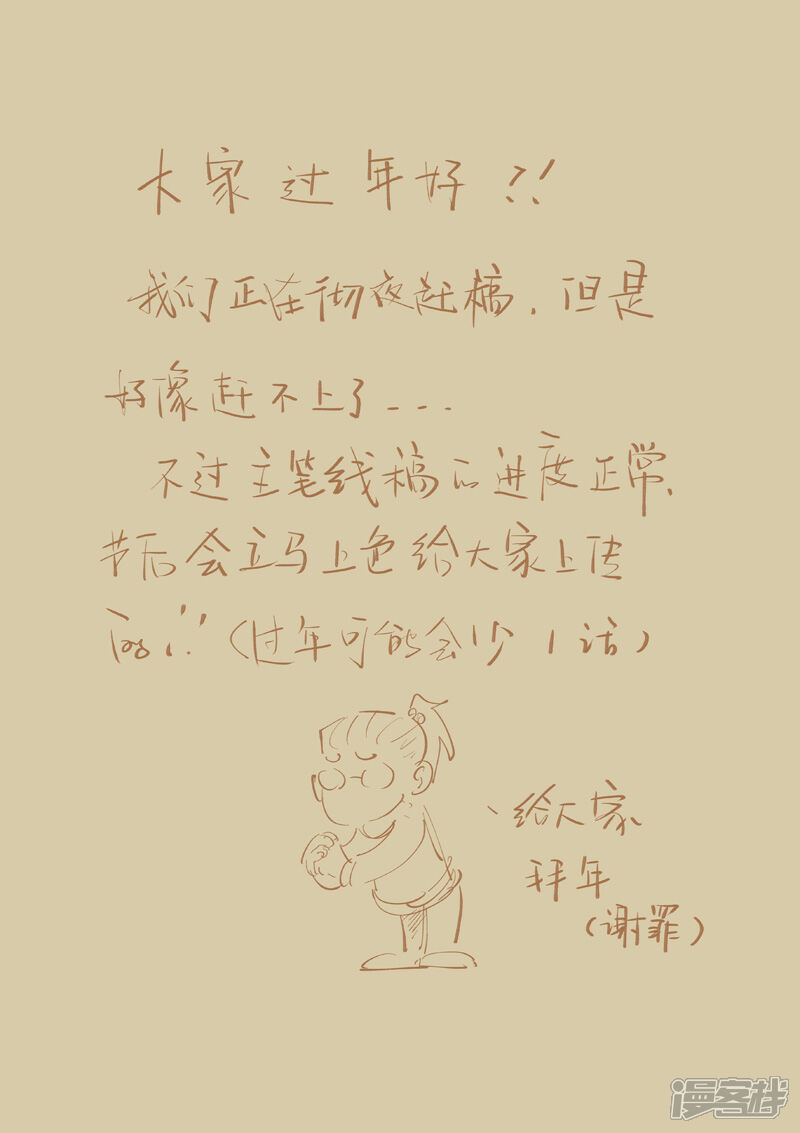 大家过年好!!
我们正在彻夜赶稿,但是
好像赶不上了---
不过主笔线稿的进度正常、
节后会立马上色给大家上传
的!!(过年可能会少1话)
、给大家
拜年
(谢罪)
漫客栈